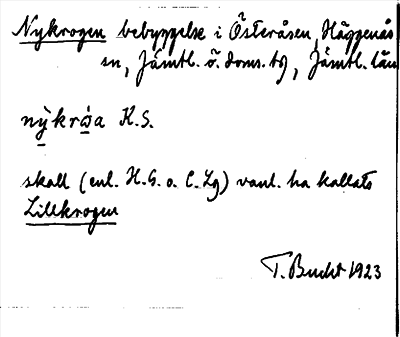 Nykrogen bebyggelse i Österåsen, Häggenås
sn, Jämtl. ö. doms. tg, Jämtl. län
nỳkrωa K.S.
skall (enl. H.G. o. C. Lg) vanl. ha kallats
Lillkrogen
T. Bucht 1923